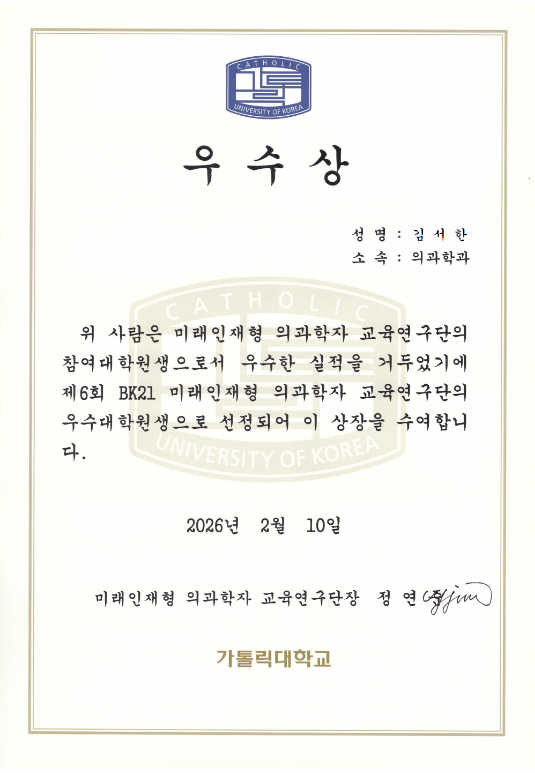 CATHOLIC
UNIVERSITY OF KOREA
우 수 상
성 명 : 김 서 한
소 속 : 의과학과
CATHOLIC
UNIVERSITY OF KOREA
위 사람은 미래인재형 의과학자 교육연구단의
참여대학원생으로서 우수한 실적을 거두었기에
제6회 BK21 미래인재형 의과학자 교육연구단의
우수대학원생으로 선정되어 이 상장을 수여합니
다.
2026년 2월 10일
미래인재형 의과학자 교육연구단장 정 연
가톨릭대학교